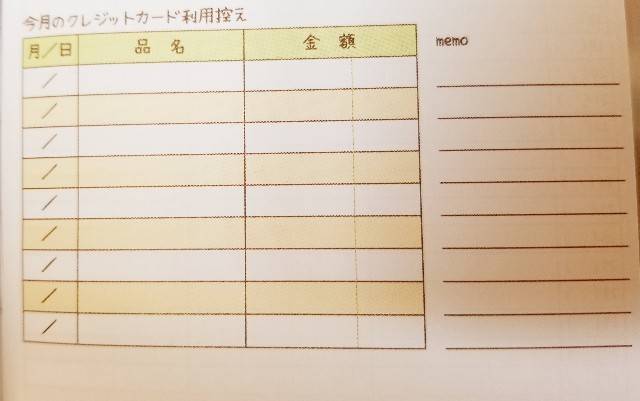 今月のクレジットカード利用控え
月／日 品名 金額
／
／
／
／
／
／
／
／
／
memo